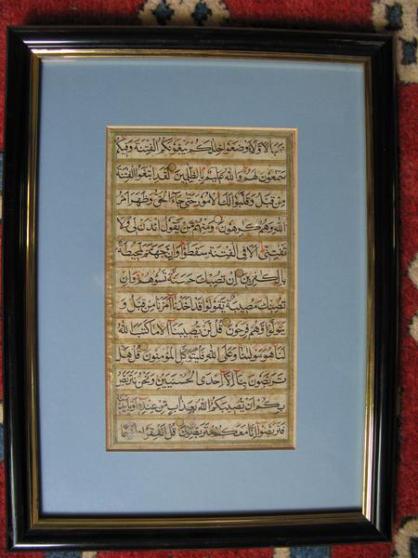 خبالا ولا اوضعوا خللكم يبغونكم الفتنة وفيكم
سمعون لهم والله عليم بالظلمين لقد ابتغوا الفتنة
من قبل وقلبوا لك الامور حتى جاء الحق وظهر امر
الله وهم كرهون ومنهم من يقول ائذن لي ولا
تفتني الا في الفتنة سقطوا وان جهنم لمحيطة
بالكفرين ان تصبك حسنة تسؤهم وان
تصبك مصيبة يقولوا قد اخذنا امرنا من قبل و
يتولوا وهم فرحون قل لن يصيبنا الا ما كتب الله
لنا هو مولينا وعلى الله فليتوكل المؤمنون قل هل
تربصون بنا الا احدى الحسنيين ونحن نتربص
بكم ان يصيبكم الله بعذاب من عنده او بايدينا
فتربصوا انا معكم متربصون قل انفقوا